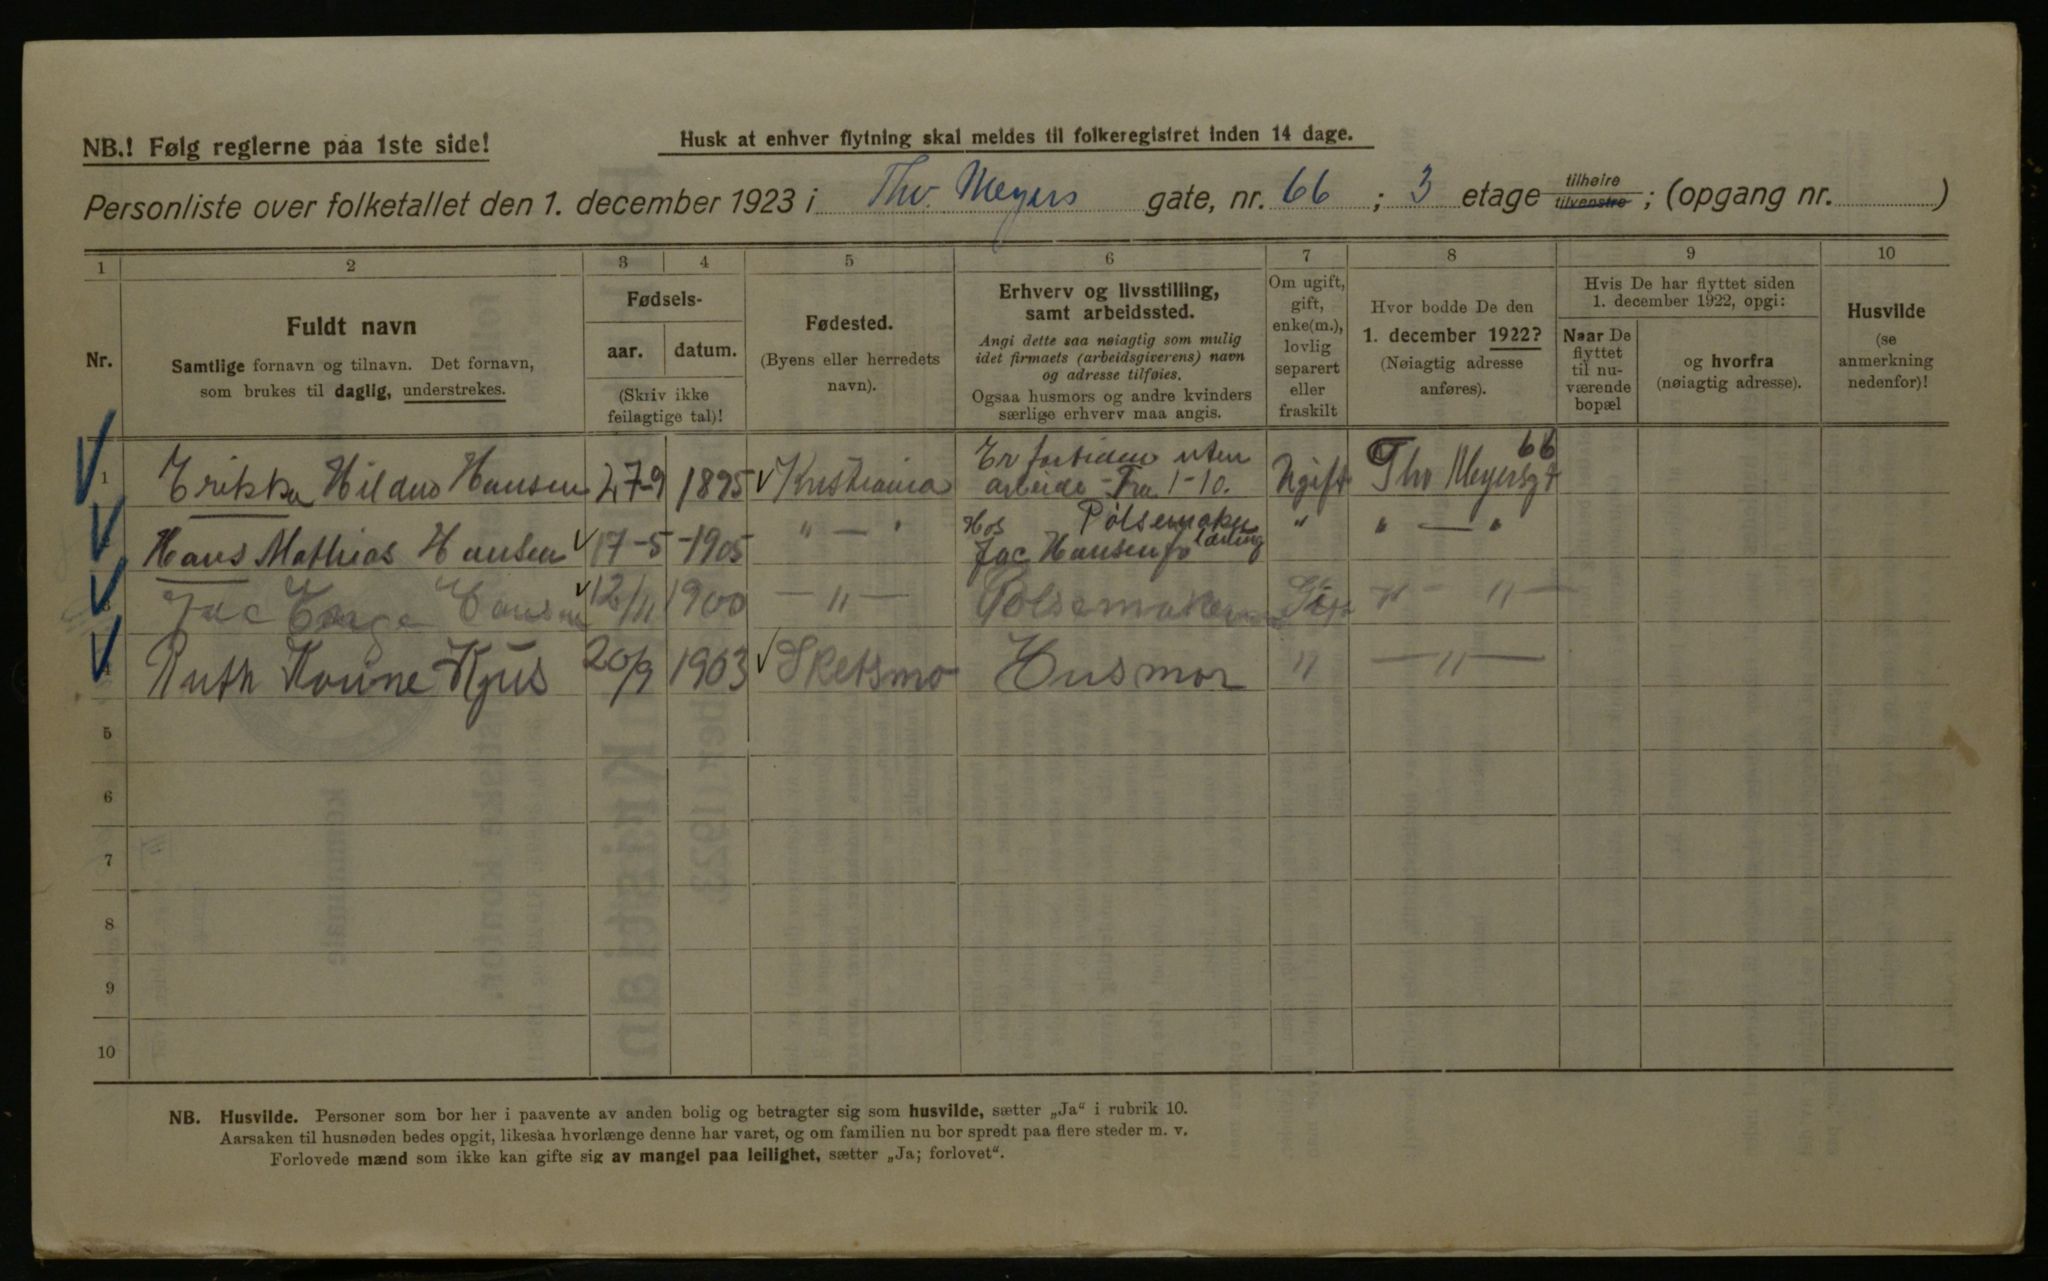 NB.! Følg reglerne paa 1ste side!
Husk at enhver flytning skal meldes til folkeregistret inden 14 dage.
Personliste over folketallet den 1. december 1923 i Thv. Meyers gate, nr. 66 ; 3 etage tilhøire tilvenstre ; (opgang nr. )
1 2 3 4 5 6 7 8 9 10
Nr.
Fuldt navn
Samtlige fornavn og tilnavn. Det fornavn,
som brukes til daglig, understrekes.
Fødsels-
aar. datum.
(Skriv ikke
feilagtige tal)!
Fødested.
(Byens eller herredets
navn).
Erhverv og livsstilling,
samt arbeidssted.
Angi dette saa nøiagtig som mulig
idet firmaets (arbeidsgiverens) navn
og adresse tilføies.
Ogsaa husmors og andre kvinders
særlige erhverv maa angis.
Om ugift,
gift,
enke(m.),
lovlig
separert
eller
fraskilt
Hvor bodde De den
1. december 1922?
(Nøiagtig adresse
anføres).
Hvis De har flyttet siden
1. december 1922, opgi:
Naar De
flyttet
til nu-
værende
bopæl
og hvorfra
(nøiagtig adresse).
Husvilde
(se
anmerkning
nedenfor)!
1 Erikka Hildus Hansen 27-9 1895 Kristiania Er fortiden uten arbeide - Fra 1-10. Ugift Thv Meyersgt 66
Hans Mathias Hansen 17-5-1905 " — " Hos Pølsemaker Jac Hansen lærling " " — "
3 Jac Hansen 12/11 1900 — " — Pølsemaker Gift " — " —
4 Ruth Kjus 20/9 1903 Sketsmo Husmor " — " —
5
6
7
8
9
10
NB. Husvilde. Personer som bor her i paavente av anden bolig og betragter sig som husvilde, sætter „Ja“ i rubrik 10.
Aarsaken til husnøden bedes opgit, likesaa hvorlænge denne har varet, og om familien nu bor spredt paa flere steder m. v.
Forlovede mænd som ikke kan gifte sig av mangel paa leilighet, sætter „Ja; forlovet“.